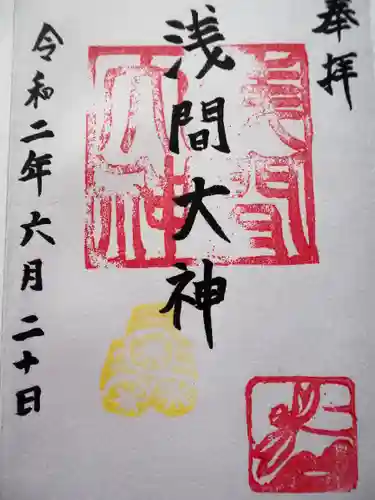 奉拝
浅間大神
令和二年六月二十日
浅間
大神